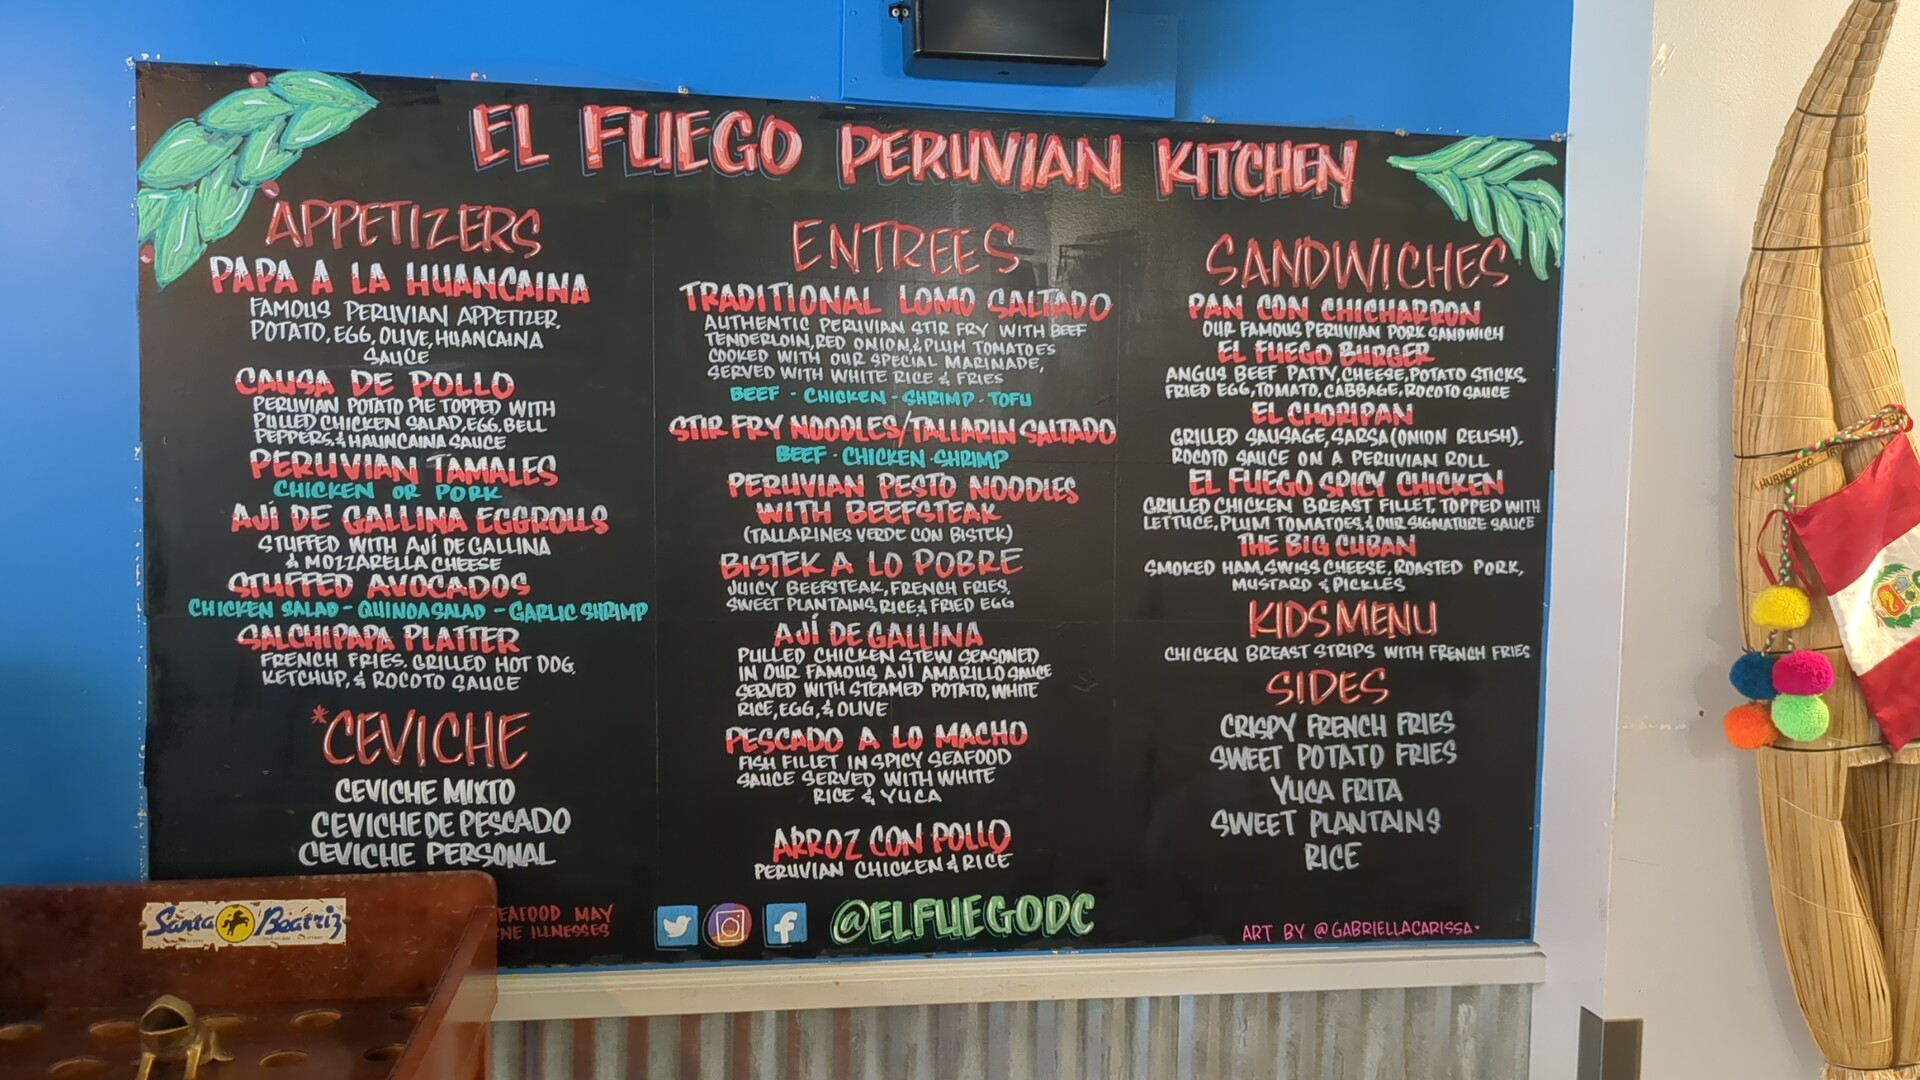 EL FUEGO PERUVIAN KITCHEN
APPETIZERS
PAPA A LA HUANCAINA
FAMOUS PERUVIAN APPETIZER,
POTATO, EGG, OLIVE, HUANCAINA
SAUCE
CAUSA DE POLLO
PERUVIAN POTATO PIE TOPPED WITH
PULLED CHICKEN SALAD, EGG, BELL
PEPPERS, & HAUNCAINA SAUCE
PERUVIAN TAMALES
CHICKEN OR PORK
AJÍ DE GALLINA EGGROLLS
STUFFED WITH AJÍ DE GALLINA
& MOZZARELLA CHEESE
STUFFED AVOCADOS
CHICKEN SALAD - QUINOA SALAD - GARLIC SHRIMP
SALCHIPAPA PLATTER
FRENCH FRIES, GRILLED HOT DOG,
KETCHUP, & ROCOTO SAUCE
*CEVICHE
CEVICHE MIXTO
CEVICHE DE PESCADO
CEVICHE PERSONAL
EAFOOD MAY
NE ILLNESSES
ENTREES
TRADITIONAL LOMO SALTADO
AUTHENTIC PERUVIAN STIR FRY WITH BEEF
TENDERLOIN, RED ONION, & PLUM TOMATOES
COOKED WITH OUR SPECIAL MARINADE,
SERVED WITH WHITE RICE & FRIES
BEEF - CHICKEN - SHRIMP - TOFU
STIR FRY NOODLES/TALLARIN SALTADO
BEEF - CHICKEN - SHRIMP
PERUVIAN PESTO NOODLES
WITH BEEFSTEAK
(TALLARINES VERDE CON BISTEK)
BISTEK A LO POBRE
JUICY BEEFSTEAK, FRENCH FRIES,
SWEET PLANTAINS, RICE, & FRIED EGG
AJÍ DE GALLINA
PULLED CHICKEN STEW SEASONED
IN OUR FAMOUS AJÍ AMARILLO SAUCE
SERVED WITH STEAMED POTATO, WHITE
RICE, EGG, & OLIVE
PESCADO A LO MACHO
FISH FILLET IN SPICY SEAFOOD
SAUCE SERVED WITH WHITE
RICE & YUCA
ARROZ CON POLLO
PERUVIAN CHICKEN & RICE
@ELFUEGODC
SANDWICHES
PAN CON CHICHARRON
OUR FAMOUS PERUVIAN PORK SANDWICH
EL FUEGO BURGER
ANGUS BEEF PATTY, CHEESE, POTATO STICKS,
FRIED EGG, TOMATO, CABBAGE, ROCOTO SAUCE
EL CHORIPAN
GRILLED SAUSAGE, SARSA (ONION RELISH),
ROCOTO SAUCE ON A PERUVIAN ROLL
EL FUEGO SPICY CHICKEN
GRILLED CHICKEN BREAST FILLET, TOPPED WITH
LETTUCE, PLUM TOMATOES, & OUR SIGNATURE SAUCE
THE BIG CUBAN
SMOKED HAM, SWISS CHEESE, ROASTED PORK,
MUSTARD & PICKLES
KIDS MENU
CHICKEN BREAST STRIPS WITH FRENCH FRIES
SIDES
CRISPY FRENCH FRIES
SWEET POTATO FRIES
YUCA FRITA
SWEET PLANTAINS
RICE
ART BY @GABRIELLACARISSA
Santa Beatriz
HUANCHACO